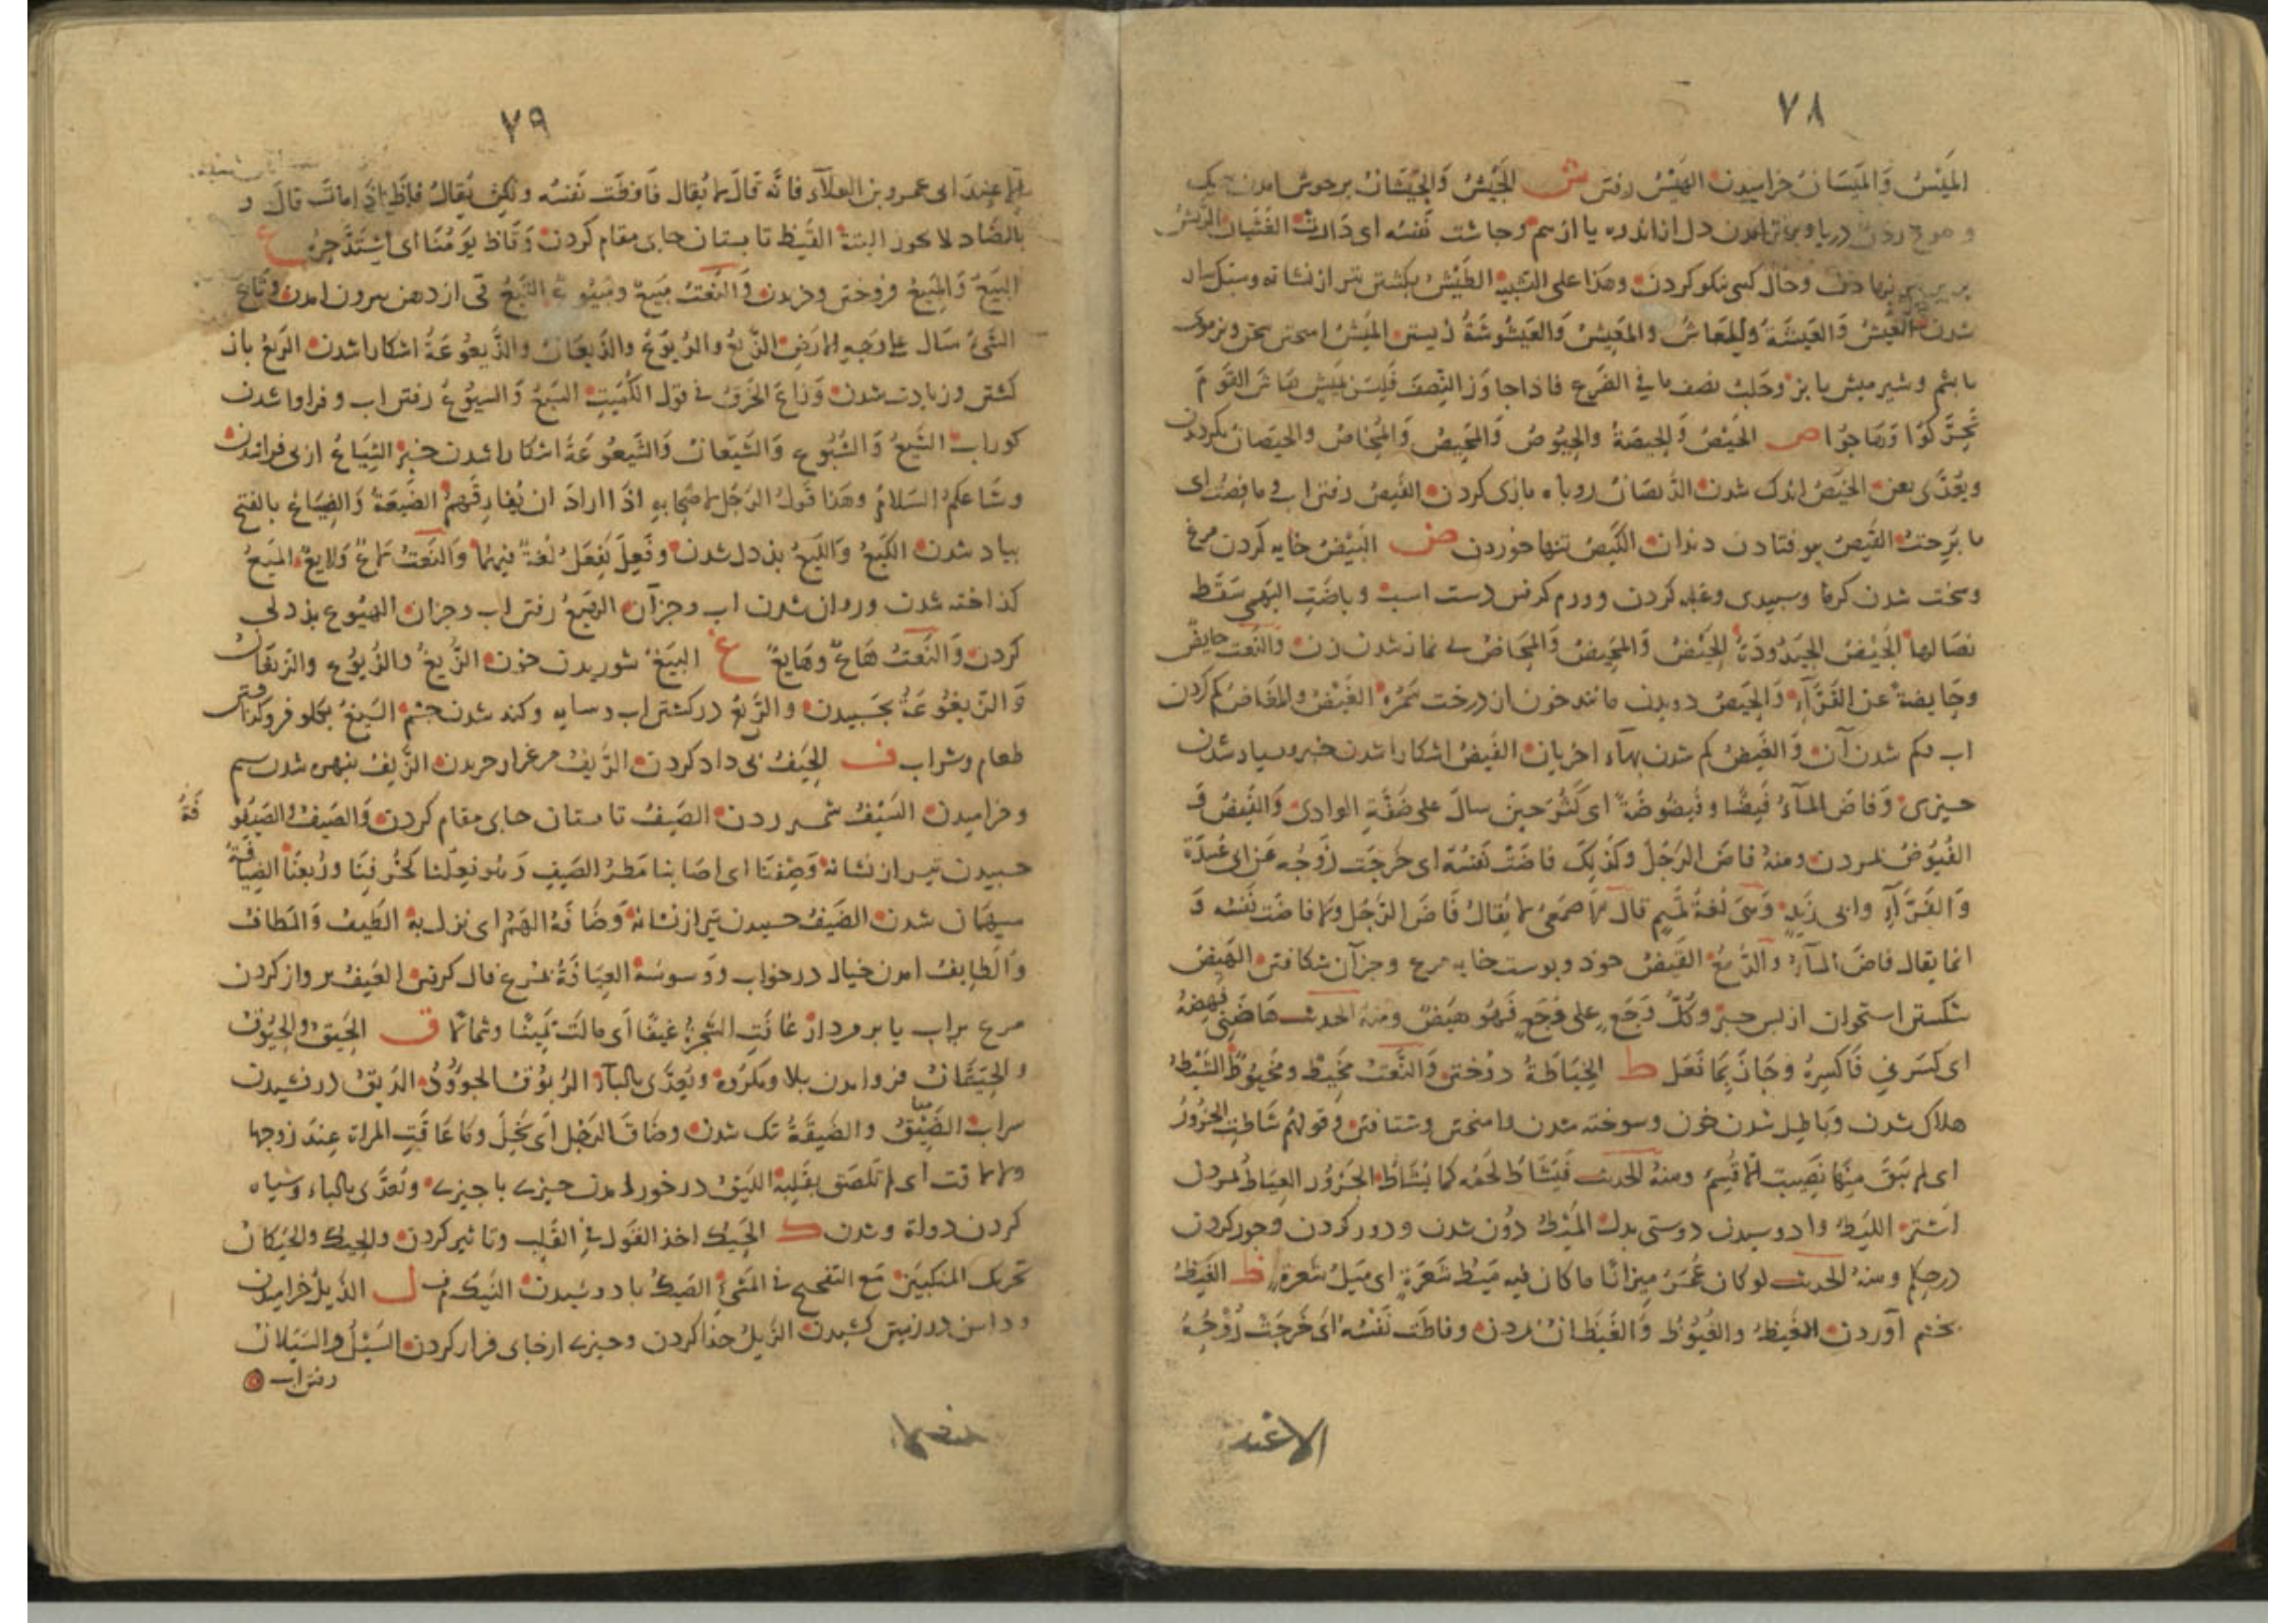 ٧٨
المَيْسُ وَالمَيَسَانُ خراميدن الهَيْسُ رفتن ش الجَيْشُ وَالجَيَشَانُ برجوش امدن
و موج زدن دريا و برامدن دل از اندوه يا از بيم وجاشت نَفسُه اى دَارت الغَثَيان الرَيشُ
نهادن وحال كسى نيكو كردن وهَذا على التشبيه الطَيْشُ بكشتن تير از نشانه وسبكسار
شدن العَيْشُ وَالعَيشَةُ وَالمعَاشُ والمَعِيشُ وَالعَيْشُوشَةُ زيستن المَيْشُ امختن سخن
با پشم وشير ميش با بز وحَلبُ نصف ما فى الضَرع فاذا جاوَز النِصفَ فَليسَ بمَيشٍ هَاشَ القَومَ
تَحَرَّكوُا وَهَاجوُا ص الحَيْصُ وَالحَيصَةُ والحُيوُصُ وَالمَحِيصُ وَالمَحَاصُ والحَيَصَانُ بكرديدن
ويُعَدَّى بعن الخَيَصُ اندك شدن الدَيَصَانُ روباه بازى كردن الفَيصُ رفتن اب وما فِصتُ اى
ما بَرِحتُ القَيصُ بيوفتادن دندان الكَيصُ تنها خوردن ض البَيْضُ خايه كردن مرغ
وسخت شدن كرما وسپيدى وغلبه كردن وورم كرفتن دست اسب وباضَتِ البُهمَى سَقَط
نصَالها الجَيْضُ الحَيْدُودَةُ الحَيْضُ وَالمَحِيضُ وَالمَحَاضُ بى نماز شدن زن والنَعت حايضٌ
وحَايضةٌ عن الفَرَّآءِ وَالحَيضُ دويدن مانند خون از درخت سَمُره الغَيْضُ والمغَاضُ كم كردن
اب وكم شدن آن وَالغَيضُ كم شدن بهآء اخريان الفَيضُ اشكارا شدن خبر وبسيار شدن
چيزى وَفاضَ المآءُ فَيضًا وفَيضُوضَةً اى كَثُرَ حين سالَ على ضَفَّةِ الوادى وَالفَيضُ وَ
الفُيُوضُ بمردن ومنهُ فاضَ الرَجُلُ وكَذلِكَ فاضَتْ نَفسُه اى خرجَت رُوحُه عن اى عُبيدَة
وَالفَرَّآءِ وابى زَيدٍ وَهىَ لُغةُ تَميمٍ قالَ الاصمَعىُّ لا يُقالُ فَاضَ الرَجُل ولا فاضَت نَفْسُه وَ
انما يقال فاضَ المآءُ والدَّمعُ القَيضُ خود وپوست خايه مرع وجزآن شكافتن الهَيضُ
شكستن استخوان از پس جبر وكُلُّ وَجَعٍ على وَجَعٍ فَهُوَ هَيضٌ ومنهُ الحديث هَاضَنى فَهِضْهُ
اى كسَرنى فَاكسِرهُ وجَازَ بِمَا فَعَل ط الخِيَاطَةُ دوختن وَالنَّعتُ مَخِيطٌ ومَخْيُوطٌ الشَيْطُ
هلاك شدن وبَاطِل شدن خون وسوخته شدن وامختن وشتافتن وقولهم شَاطَتِ الجَزُورُ
اى لم يَبقَ منها نَصِيبٌ الاّ قُسِمَ ومنهُ الحديث فَيُشَاطُ لَحمُه كما يُشَاطُ الجَزُور العِيَاطُ
اشتر اللَيطُ وادوسيدن دوستى بدل المَيْطُ دوُن شدن ودور كردن وجور كردن
درحكم ومنهُ الحديث لو كان عُمَرُ مِيزانًا ما كان فيه مَيطُ شَعَرةٍ اى مَيلُ شعَرةٍ ظ الغَيظُ
بخشم آوردن الفَيظُ والفُيوُظُ وَالفَيَظَانُ مردن وفاظَت نَفْسُهُ اى خَرجَتْ رُوْحُهُ
الا عند
٧٩
الا عِندَ ابى عمرو بن العلآء فانَّه قَالَ لا يُقال فَاظَت نَفسُه ولكن يُقالُ فاظَ اذا ماتَ قالَ و
بالضَاد لا يجوز البتة القَيظ تابستان جاى مقام كردن وَقَاظ يَومُنَا اى اشتَدَّ حَرُّه ع
البَيعُ وَالمَبيعُ فروختن وخريدن وَالنَّعتُ مَبِيعٌ ومَبيُوعٌ التَيعُ قى از دهن بيرون امدن وتَاعَ
الشَىءُ سَال على وجهِ الارَضِ الذَّيعُ والذُيُوعُ والذَيَعَانُ والذَيعُوعَةُ اشكارا شدن الرَيعُ باز
كشتن وزيادت شدن وَرَاعَ الخَرقُ فى قول الكُمَيتِ السَيعُ وَالسيوُعُ رفتن اب وفراوا شدن
كوراب الشَيعُ وَالشُيُوع وَالشَيَعَانُ وَالشَيعُوعَةُ اشكارا شدن خبر الشِيَاعُ از پى فراشدن
وشَاعَكمُ السَلامُ وهَذا قولُ الرَجُلِ لاصْحَابهِ اذَا ارادَ ان يُفارِقَهمُ الضَيعَةُ وَالضيَاعُ بالفتح
بباد شدن الكَيعُ وَاللَيعُ بددل شدن وفَعِلَ يَفعَلُ لُغةٌ فيهما وَالنَعتُ لاعٌ وَلايعٌ المَيعُ
كداخته شدن وروان شدن اب وجزآن الهَيعُ رفتن اب وجزان الهيُوع بددلى
كردن وَالنَعتُ هَاعٌ وهَايعٌ غ البَيغُ شوريدن خون الزَيغُ والزُيوُغ والزيغَانُ
وَالزيغُوغَةُ بچسبيدن والزَيغ دركشتن اب وسايه وكند شدن چشم السَيغُ بكلو فروكذاشتن
طعام وشراب ف الحَيفُ بى داد كردن الرَيفُ مرغزار چريدن الزَيفُ نبهره شدن سيم
وخراميدن السَيْفُ شمشير زدن الصَيفُ تابستان جاى مقام كردن وَالصَيفُ والصَيفوُفَةُ
چسبيدن تير از نشانه وَصِفنَا اى اصَابنا مَطَرُ الصَيفِ وَهُو فُعِلنا كخُرِفنَا ورُبعنَا الضِيَافَةُ
ميهمان شدن الضَيفُ چسبيدن تير از نشانه وَضَافَهُ الهَمُ اى نزل به الطَيفُ وَالمَطافُ
وَالطَايفُ امدن خيال درخواب ووَسوسَهُ العِيَافَةُ بمرغ فال كرفتن العَيفُ پرواز كردن
مرغ براب يا بر مردار غَافَتِ الشجَرَةُ غيفًا اَى مالَتْ يَمينًا وشمالاً ق الحَيقُ والحيُوقُ
والحَيَقَانُ فرود امدن بلا ومكرُوه ويُعدَّى بالبآءِ الرَيقُ درفشيدن
سراب الضَيقُ والضَيقَةُ تنك شدن وضَاقَ الرَجُل اَى بَخِلَ وما عَاقَتِ المراة عِندَ زوجها
ولا لاقت اى لم تَلصَق بقَلبِه اللَيقُ درخور امدن چيزى باچيزى وتُعَدَّى بالباء وسياه
كردن دواة وشدن ك الحَيكُ اخذ القَول فى القَلبِ وتاثير كردن والحَيكُ والحَيَكانُ
تحريك المنكبَين مَع التَفحج فى المَشىِ ل الذَيلُ خراميدن
ودامن در زمين كشيدن الزَيلُ جدا كردن وچيزى ازجاى فرا كردن السَيْلُ والسَيَلانُ
رفتن اب